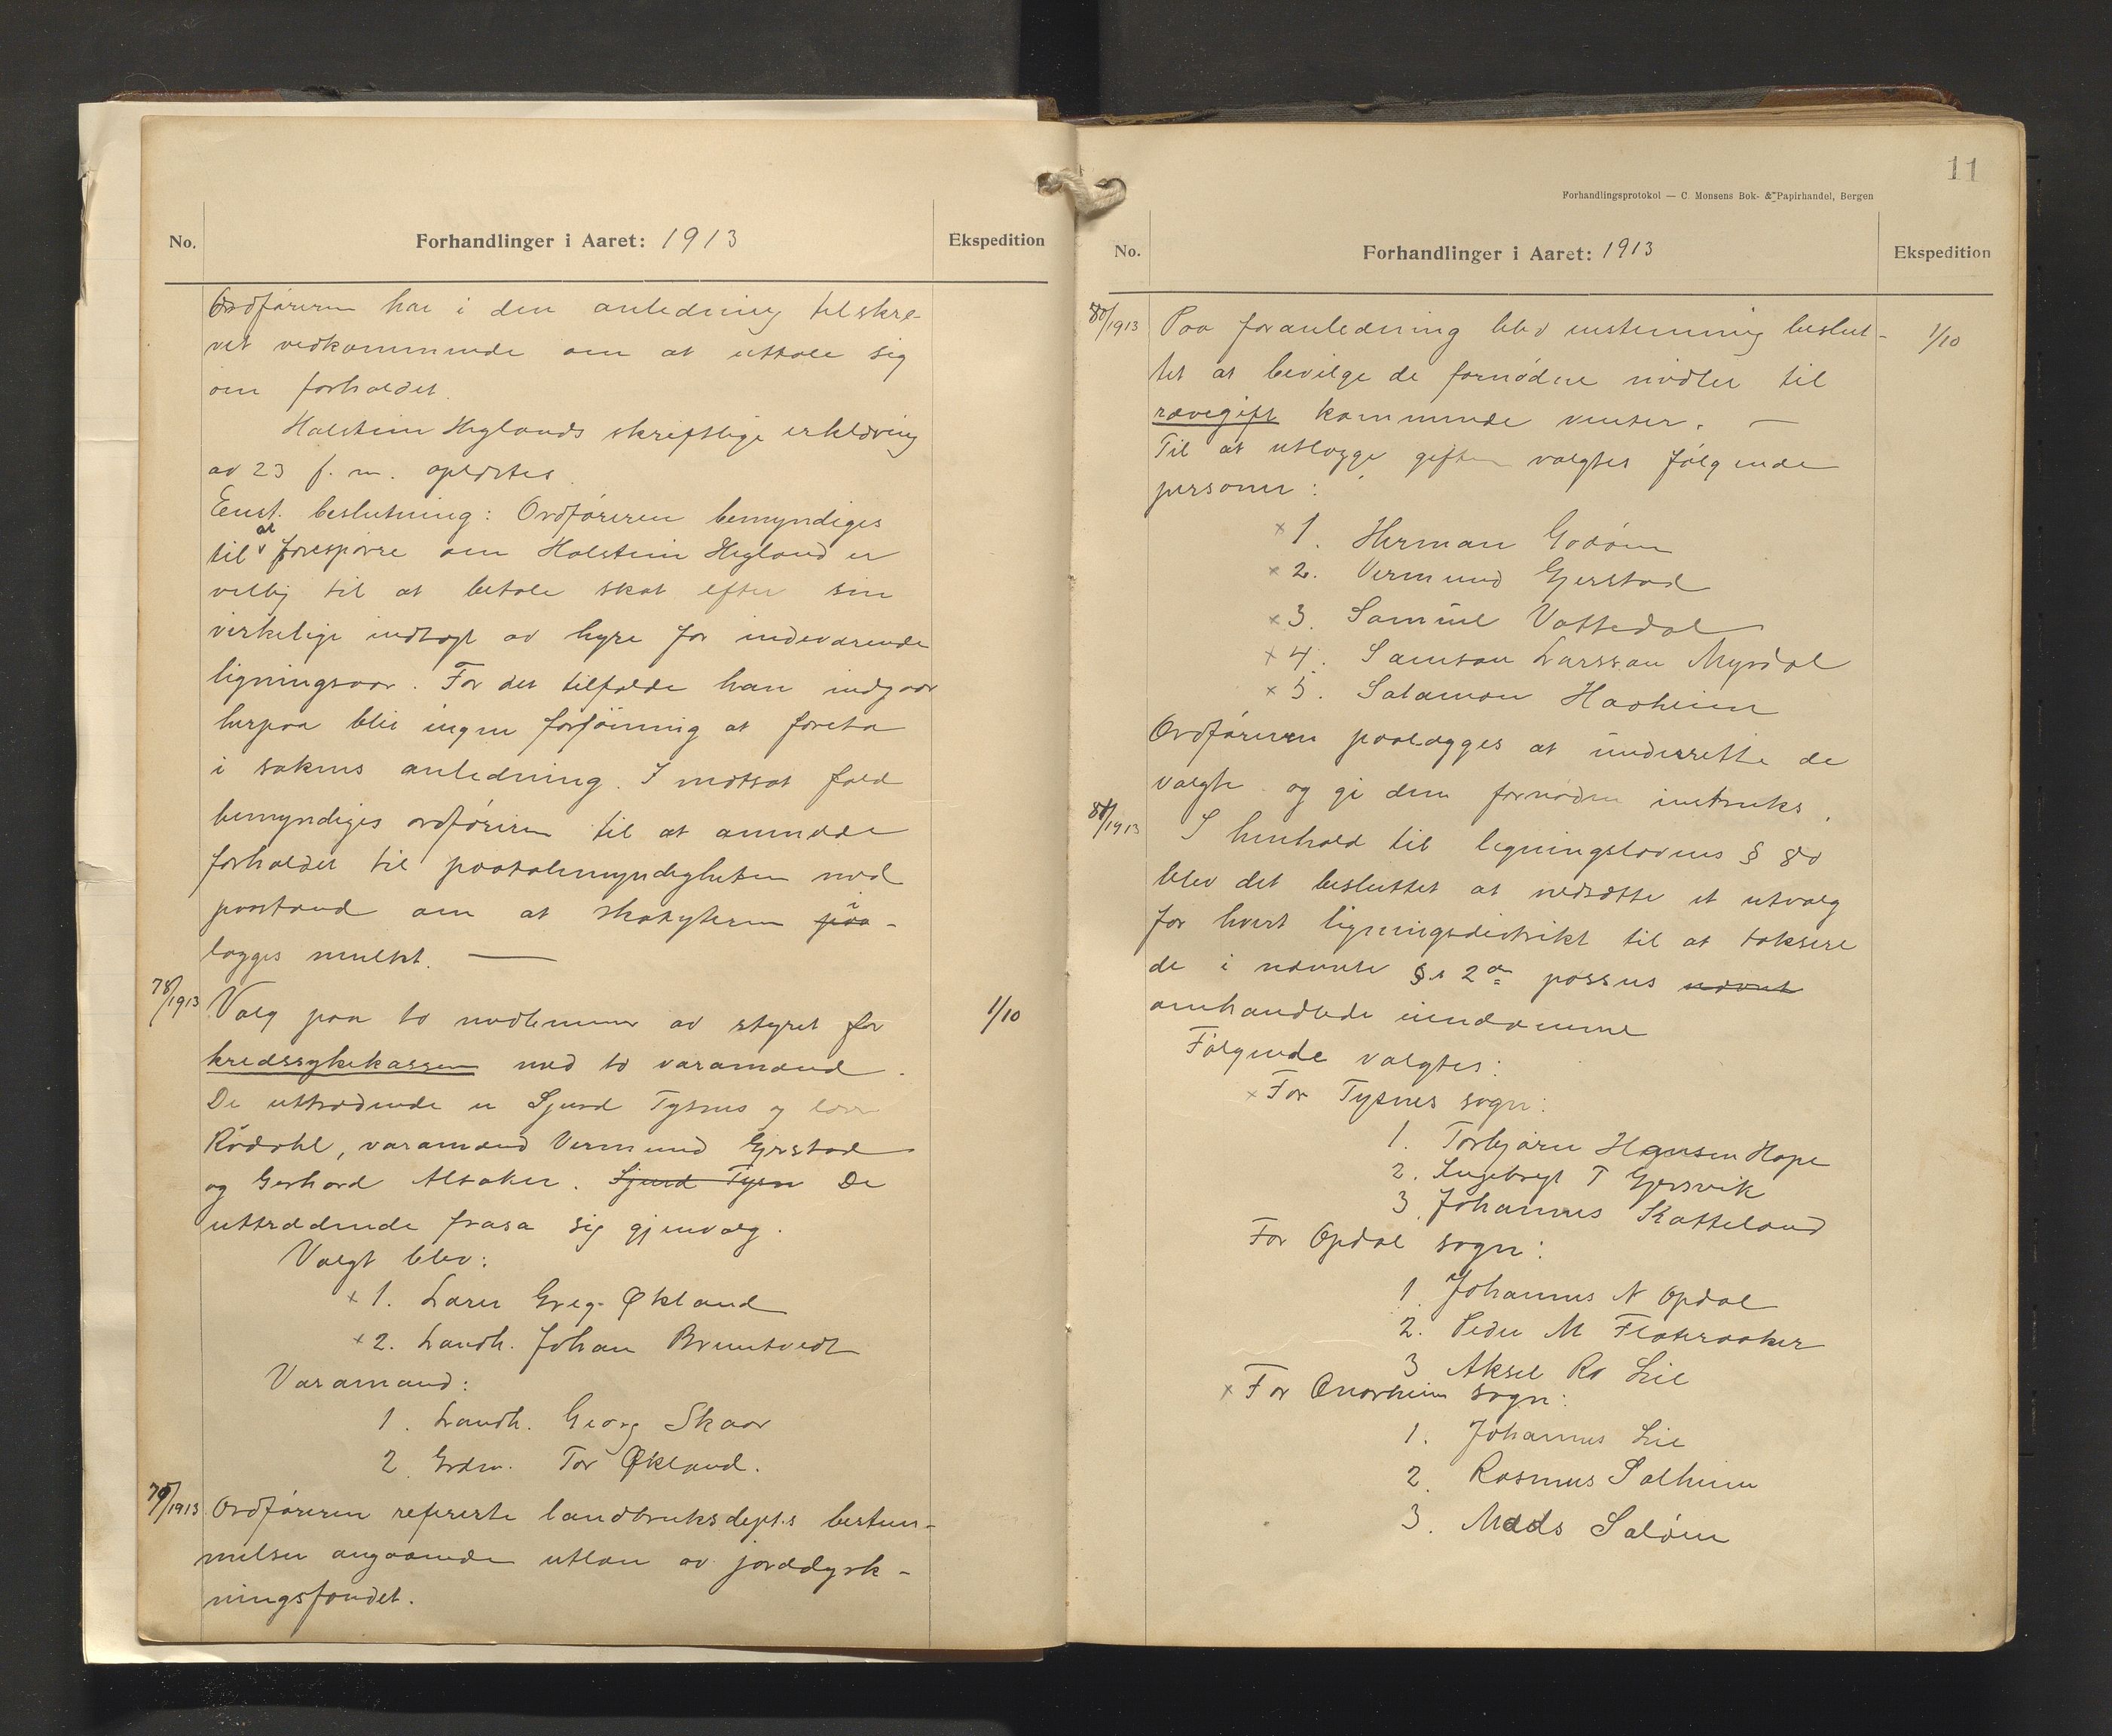 No.
Forhandlinger i Aaret: 1913
Ekspedition
Ordføreren har i den anledning tilskre-
vet vedkommende om at uttale sig
om forholdet.
Halstein Heglands skriftlige erklæring
av 23 f. m. oplæstes.
Enst. beslutning: Ordføreren bemyndiges
til at forespørre om Halstein Hegland er
villig til at betale skat efter sin
virkelige indtægt av hyre for indeværende
ligningsaar. For det tilfælde han indgaar
herpaa blir ingen forføining at foreta
i sakens anledning. I motsat fald
bemyndiges ordføreren til at anmelde
forholdet til paatalemyndigheten med
paastand om at skatyteren i paa-
lægges mulkt. —
78/1913
Valg paa to medlemmer av styret for
1/10
kredssykekassen med to varamænd.
De uttrædende er Sjurd Tysnes og
Rødahl, varamænd Vermund Gjerstad
og Gerhard Alsaker. Sjurd Tysn De
uttrædende frasa sig gjenvalg.
Valgt blev:
x 1. Lærer Greg. Økland
x 2. Landh. Johan Bruntvedt
Varamænd:
1. Landh. Georg Skaar
2. Grdm. Tor Økland.
79/1913
Ordføreren refererte landbruksdept.s bestem-
melser angaaende utlaan av jorddyrk-
ningsfondet.
11
Forhandlingsprotokol — C. Monsens Bok- & Papirhandel, Bergen
No.
Forhandlinger i Aaret: 1913
Ekspedition
80/1913
Paa foranledning blev enstemmig beslut-
1/10
tet at bevilge de fornødne midler til
rævegift kommende vinter. —
Til at utlægge giften valgtes følgende
personer:
x 1. Herman Godøen
x 2. Vermund Gjerstad
x 3. Samuel Vattedal
x 4. Samson Larsson Myrdal
x 5. Salamon Haaheim
Ordføreren paalægges at underrette de
valgte og gi dem fornøden instruks.
81/1913
I henhold til ligningslovens § 80
blev det besluttet at nedsætte et utvalg
for hvert ligningsdistrikt til at taksere
de i nævnte §s 2 passus nævnt
omhandlede eiendomme
Følgende valgtes:
x For Tysnes sogn:
1. Torbjørn Hansen Hope
2. Ingebregt T Gjersvik
3. Johannes Katteland
For Opdal sogn:
1. Johannes N Opdal
2. Peder M Flateraaker
3 Aksel Lie
x For Onarheim sogn:
1. Johannes Lie
2. Rasmus Solheim
3. Mads Saløen